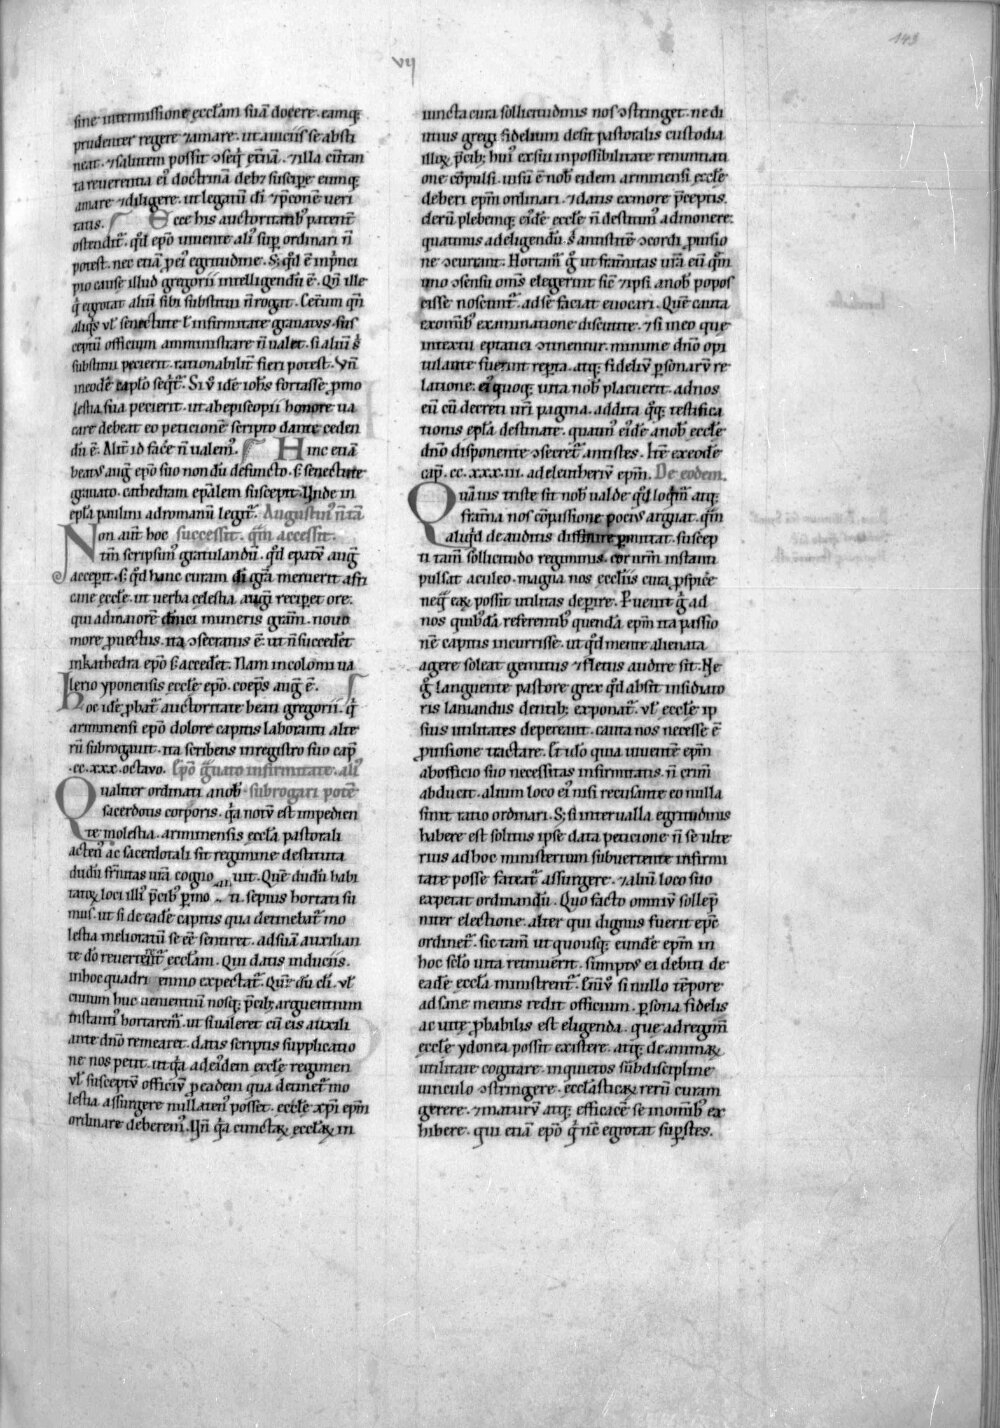 143
vij
sine intermissione eccl'am suā docere. eamq;
prudenter regere ⁊ amare. ut a uiciis se absti
neat. ⁊ salutem possit ↄseq̄ et̄nā. ⁊ illa cūtan
ta reuerentia ei' doctrinā deb; suscip̲e eumq;
amare ⁊ diligere. ut legatū dī ⁊ p̄conē ueri
tatis. Ecce his auctoritatib' patent̄
ostendit̄. qd' ep̄o uiuente ali' sup̲ ordinari n̄
potest. nec etiā p̲ ei' egritudine. S; qd' ē inp̄nci
pio cause illud gregorii intelligendū ē. Qn̄ ille
q̇ egrotat aliū sibi substitui n̄ rogat. Cet̄um qn̄
aliq̇s ul' senectute l' infirmitate grauatus. sus
ceptū officium amministrare n̄ ualet. si aliū s'
substitui pecierit. rationabilit̄ fieri potest. Vn̄
in eodē cap̄lo seqt̄. Si ū idē ioh̄s fortasse p̲ mo
lestia sua pecierit. ut ab episcopii honore ua
care debeat eo peticionē scripto dante ceden
dū ē. Alit̄ id fac̄e n̄ ualem'. Hinc etiā
beat' auḡ ep̄o suo nondū defuncto. s; senectute
grauato. cathedram ep̄alem suscepit. Unde in
ep̄la paulini ad romanū legit̄. Augustin' n̄ tā
Non aut̄ hoc successit. qm̄ accessit.
tm̄ scripsim' gratulandū. qd' ep̄atū auḡ
accep̲it. s; qd' hanc curam dī gr̄a meruerit afri
cane eccl'e. ut uerba celestia auḡ recip̲et ore.
qui ad maiorē dn̄ici muneris gram̄. nouo
more p̲uectus. ita ↄsecratus ē. ut n̄ succed̄et
in kathedra ep̄o s; acced̄et. Nam incolomi ua
lerio yponensis eccl'e ep̄o. coep̄s auḡ ē.
Hoc idē p̲bat̄ auctoritate beati gregorii. q̇
ariminensi ep̄o dolore capitis laboranti alte
rū subrogauit. ita scribens in registro suo cap̄
.cc.xxx.octauo. Ep̄o g̊uato infirmitate. ali'
Qualiter ordinati a nob' subrogari potē
sacerdotis corporis. q̄a notū est impedien
te molestia. ariminensis eccl'a pastorali
acten' ac sacerdotali sit regimine destituta
dudū fr̄nitas ur̄a cogno uit. Quē dudū habi
tatoꝝ loci illi' p̄cib' p̲mo ti. sepius hortati su
mus. ut si de eadē capitis qua detinebat̄ mo
lestia melioratū se ēē sentiret. ad suā auxilian
te dō reuertet̄ eccl'am. Qui datis induciis.
in hoc quadri ennio expectat̄. Quē dū cl'i. ul'
ciuium huc uenientiū nosq; p̄cib; arguentium
instanti' hortarem̄. ut si ualeret cū eis auxili
ante dn̄o remearet. datis scriptis supplicatio
ne nos petit. ut q̄a ad ei'dem eccl'e regimen
ul' susceptū officiū p̲ eadem qua detinet̄ mo
lestia assurgere nullaten' posset. eccl'e xp̄i ep̄m
ordinare deberem'. Un̄ q̄a cunctaꝝ eccl'aꝝ in
iuncta cura sollicitudinis nos ↄstringet. ne di
utius gregi fidelium desit pastoralis custodia
illoꝝ p̄cib; hui' ex sui inpossibilitate renuntiati
one cōpulsi. uisū ē nob' eidem ariminensi eccl'e
deberi ep̄m ordinari. ⁊ datis ex more p̄ceptis.
clerū plebemq; ei'dē eccl'e n̄ destitim' admonere:
quatinus ad eligendū s' antistitē ↄcordi p̲uisio
ne ↄcurrant. Hortam̄ g̊ ut fr̄nitas ur̄a eū qm̄
uno ↄsensu om̄s elegerint sic̄ ⁊ ipsi a nob' popos
cisse noscunt̄. ad se faciat euocari. Quē cauta
ex om̄ib' examinatione discutite. ⁊ si in eo que
in textu eptatici ↄtinentur. minime dn̄o opi
tulante fuerint rep̲ta. atq; fideliū p̲sonarū re
latione. ei' quoq; uita nob' placuerit. ad nos
eū cū decreti ur̄i pagina. addita q̊q; testifica
tionis ep̄la destinate. quatin' ei'dē a nob' eccl'e
dn̄o disponente ↄsecret̄ antistes. Itē ex eodē
cap̄. cc.xxx.iii. ad eleutheriū ep̄m. De eodem.
Quāuis triste sit nob' ualde qd' loqm̄ atq;
frat̄na nos cōpassione pocius artgiat. qm̄
aliqd' de auditis diffinire p̲mittat. suscep
ti tam̄ sollicitudo regiminis. cor nrm̄ instanti
pulsat aculeo. magna nos eccl'iis cura p̲spic̄e
neq̄ eaꝝ possit utilitas dep̲ire. Puenit g̊ ad
nos quibdā referentib' quendā ep̄m ita passio
nē capitis incurrisse. ut qd' mente alienata
agere soleat gemitus ⁊ fletus audire sit. Ne
g̊ languente pastore grex qd' absit insidiato
ris laniandus dentib; exponat̄. ul' eccl'e ip
sius utilitates depereant. cauta nos necesse ē
p̲uisione tractare. Et idō quia uiuentē ep̄m
ab officio suo necessitas infirmitatis. n̄ crim̄
abducit. alium loco ei' nisi recusante eo nulla
sinit ratio ordinari. S; si interualla egritudinis
habere est solitus ipse data peticione n̄ se ulte
rius ad hoc ministerium subuertente infirmi
tate posse fateat̄ assurgere. ⁊ aliū loco suo
expetat ordinandū. Quo facto omniū sollep̄
niter electione. alter qui dignus fuerit ep̄c
ordinet̄. sic tam̄ ut quousq; eundē ep̄m in
hoc sclo uita retinuerit. sumptus ei debiti de
eadē eccl'a ministrent̄. Enimū si nullo tēpore
ad sane mentis redit officium. p̲sona fidelis
ac uite p̲babilis est eligenda. que ad regim̄
eccl'e ydonea possit existere. atq; de animaꝝ
utilitate cogitare. inquietos sub discipline
uinculo ↄstringere. eccl'asticaꝝ rerū curam
gerere. ⁊ maturū atq; efficacē se in om̄ib' ex
hibere. qui etiā ep̄o q̇ nc̄ egrotat sup̲stes.